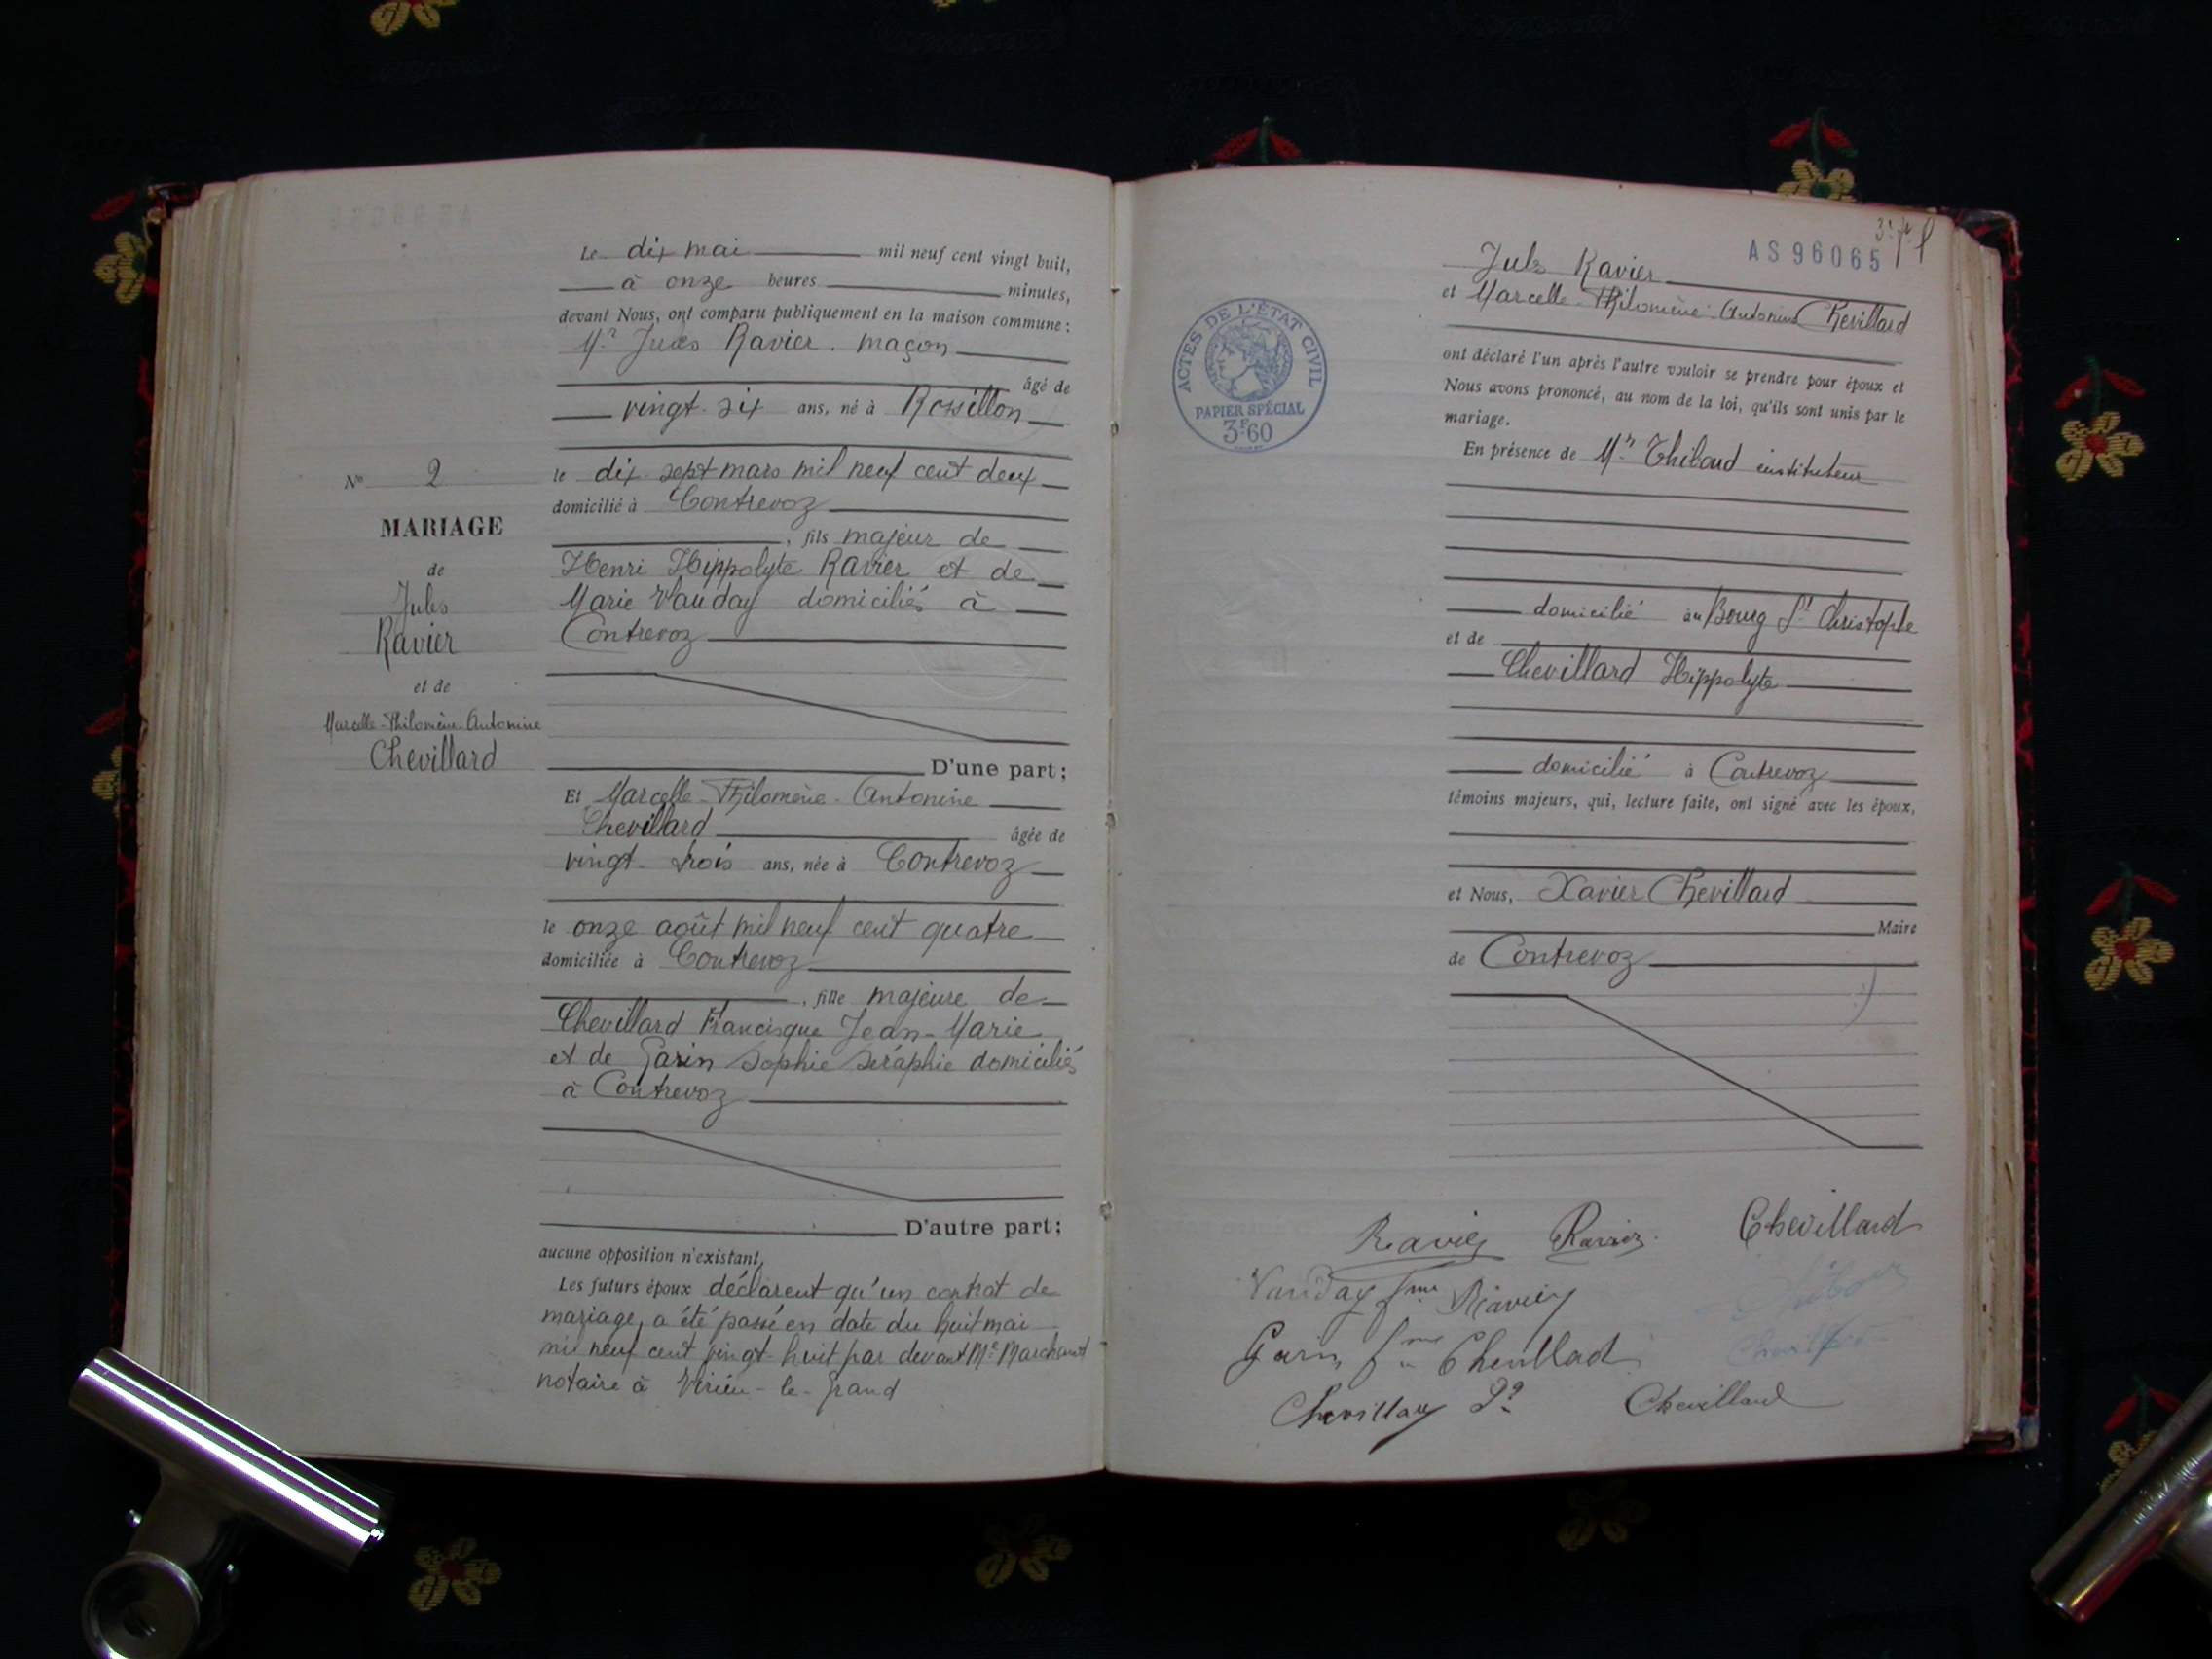 Le dix mai mil neuf cent vingt huit,
à onze heures minutes,
devant Nous, ont comparu publiquement en la maison commune :
Mr Jules Ravier. maçon
âgé de
vingt-six ans, né à Rossillon
le dix sept mars mil neuf cent deux
domicilié à Contrevoz
, fils majeur de
Henri Hippolyte Ravier et de
Marie Vauday domiciliés à
Contrevoz
D'une part ;
Et Marcelle-Philomène-Antonine
Chevillard âgée de
vingt-trois ans, née à Contrevoz
le onze août mil neuf cent quatre
domiciliée à Contrevoz
, fille majeure de
Chevillard Francisque Jean-Marie
et de Garin Sophie Séraphie domiciliés
à Contrevoz
D'autre part ;
aucune opposition n'existant,
Les futurs époux déclarent qu'un contrat de
mariage, a été passé en date du huit mai
mil neuf cent vingt-huit par devant Me Marchand
notaire à Virieu-le-Grand
No 2
MARIAGE
de
Jules
Ravier
et de
Marcelle-Philomène-Antonine
Chevillard
AS 96065
ACTES DE L'ÉTAT CIVIL
PAPIER SPÉCIAL
3F60
Jules Ravier
et Marcelle-Philomène-Antonine Chevillard
ont déclaré l'un après l'autre vouloir se prendre pour époux et
Nous avons prononcé, au nom de la loi, qu'ils sont unis par le
mariage.
En présence de Mr Thibaud instituteur
domicilié au Bourg St Christophe
et de
Chevillard Hippolyte
domicilié à Contrevoz
témoins majeurs, qui, lecture faite, ont signé avec les époux,
et Nous, Xavier Chevillard
Maire
de Contrevoz
Ravier Ravier Chevillard
Vauday fme Ravier
Garin fme Chevillard
Chevillard Chevillard